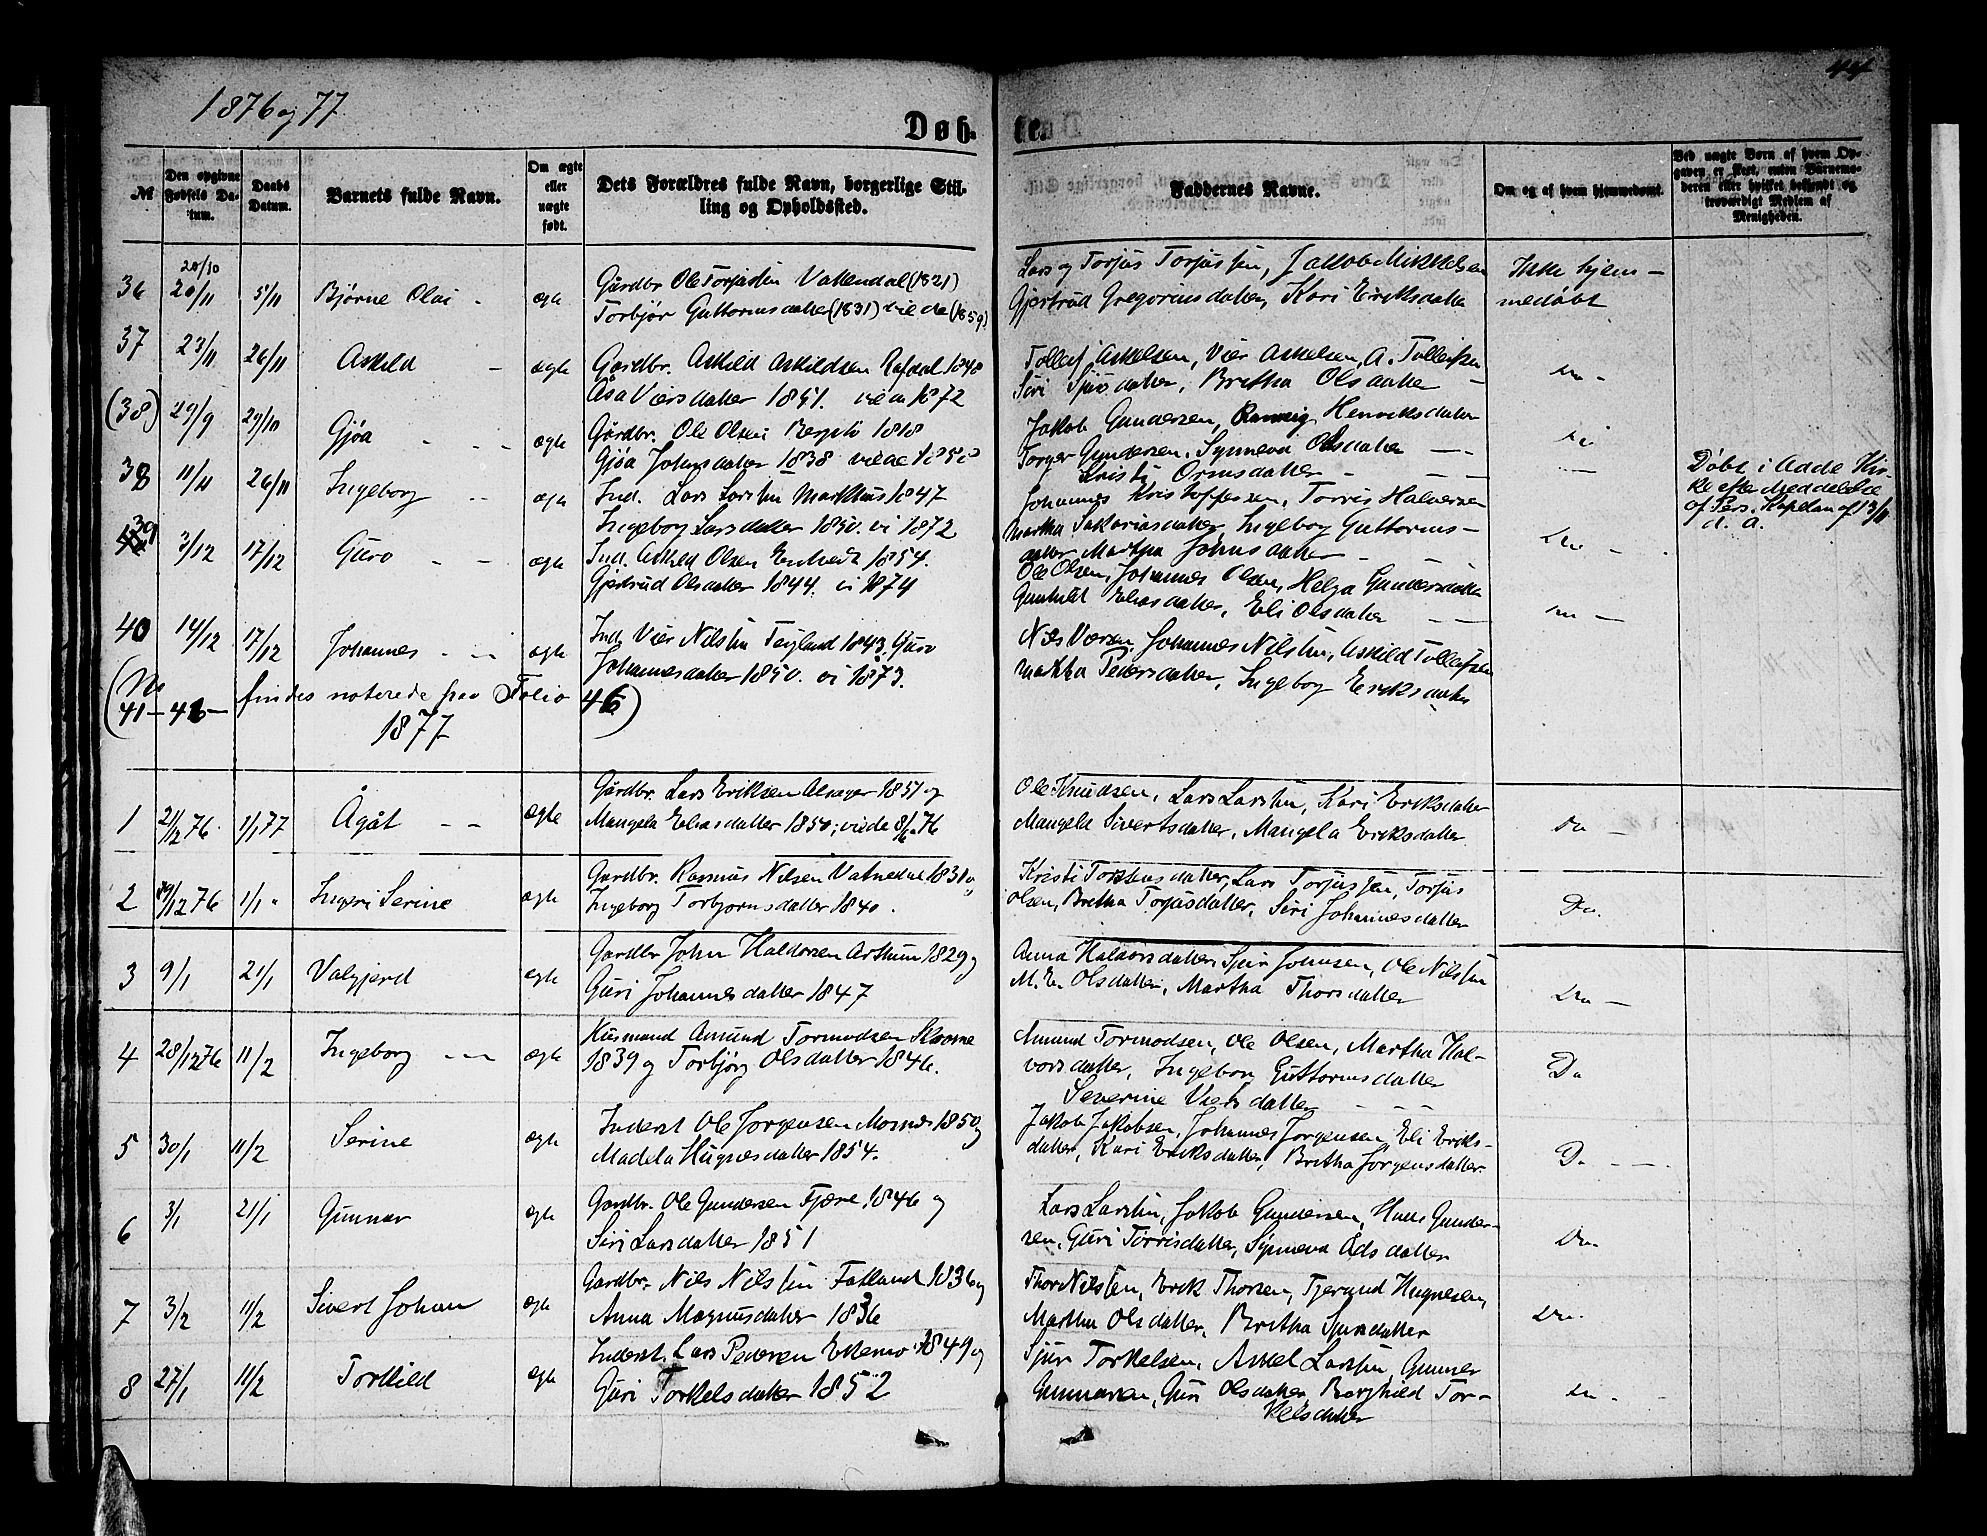 1876 og 77
44
Døb-
te.
№
Den opgivne Fødsels Da-tum.
Daabs Datum.
Barnets fulde Navn.
Om ægte eller uægte født.
Dets Forældres fulde Navn, borgerlige Stil-
ling og Opholdssted.
Faddernes Navne.
Om og af hvem hjemmedøbt.
Ved uægte Børn af hvem Op-
gaven er skeet, enten Barnemo-
deren eller hvilket bekjendt og
troværdigt Medlem af
Menigheden.
20/10
36 20/11 5/11 Bjørne Olai - ægte
Gårdbr Ole Torjussen (1821)
Torbjør Guttormsdatter (1831) viede (1859)
Lars og Torjus Torjussen, Jakob Mikkelsen
Gjertrud Gregoriusdatter, Kari Eriksdatter
Ikke hjem-
medøbt
37 23/11 26/11 Askild - ægte
Gårdbr. Askild Askildsen 1848
Åsa Viersdatter 1851. vie 1872
Tollef Askelsen, Vier Askelsen, A. Tollefsen
Siri Sjursdatter, Britha Olsdatter -
(38) 29/9 29/10 Gjøa - - - ægte
Gårdbr. Ole Olsen 1818
Gjøa Johnsdatter 1838
Jakob Gundersen, Henriksdatter
Torger Gundersen, Synneva Olsdatter
Kristi Ormsdatter - -
38 11/11 26/11 Ingeborg - - ægte
Ind. Lars Larsen Markhus 1847
Ingeborg Larsdatter 1850. vi 1872
Johannes Kristoffersen, Torris Halvorsen
Martha Sakariasdatter, Ingeborg Guttorms-
datter, Martha Johnsdatter -
Døbt i Kir-
ke efter Meddelelse
af Pers. Kapelan af 13/11
d. A.
39 3/12 17/12 Guro - - ægte
Ind. Askild Olsen 1854.
Gjertrud Olsdatter 1844. vi 1874
Ole Olsen, Johannes Olsen, Helga Gundersdatter
Gunhild Eliasdatter, Eli Olsdatter - -
40 14/12 17/12 Johannes - - ægte
Ind. Vier Nilsen Teigland 1843, Guro
Johannesdatter 1850. vi 1873.
Nils Viersen, Johannes Nilsen, Askild Tollefsen
Martha Pedersdatter, Ingeborg Eriksdatter
(No
41 - findes noterede paa Folio 46)
1877
1 21/12 76 1/1 77 Ågåt - - ægte
Gårdbr. Lars Eriksen 1851 og
Mangela Eliasdatter 1850; viede 8/6 76
Ole Knudsen, Lars Larsen, Kari Eriksdatter
Mangela Sivertsdatter, Mangela Eriksdatter
Do -
2 29/12 76 1/1 " Ingeri Serine ægte
Gardbr. Rasmus Nilsen Vatnedal 1831 og
Ingeborg Torbjørnsdatter 1840.
Kristi Torkelsdatter, Lars Torjussen, Torjus
Olsen, Britha Torjusdatter, Siri Johannesdatter
Do.
3 9/1 21/1 Valgjerd ægte
Gardbr John Haldorsen Arthun 1829 og
Guri Johannesdatter 1847
Anna Haldorsdatter, Sjur Johnsen, Ole Nilsen
M. E. Olsdatter, Martha Thorsdatter
Do -
4 28/12 76 11/2 Ingeborg - - ægte
Husmand Amund Tormodsen
1839 og Torbjørg Olsdatter 1846.
Amund Tormodsen, Ole Olsen, Martha Hal-
vorsdatter, Ingeborg Guttormsdatter
Severine Viersdatter - - -
Do
5 30/1 11/2 Serine ægte
Inderst Ole Jørgensen Mosnes 1850 og
Madela Hugnesdatter 1854.
Jakob Jakobsen, Johannes Jørgensen, Eli Eriks-
datter, Kari Eriksdatter, Britha Jørgensdatter
Do - - -
6 3/1 21/1 Gunnar ægte
Gardbr. Ole Gundersen Fjære 1846 og
Siri Larsdatter 1851
Lars Larsen, Jakob Gundersen, Hans Gunder-
sen, Guri Torrisdatter, Synneva Odsdatter
Do.
7 3/2 11/2 Sivert Johan ægte
Gardbr. Nils Nilsen Fatland 1836 og
Anna Magnusdatter 1836
Thor Nilsen, Erik Thorsen, Tjerand Hugnesen,
Martha Olsdatter, Britha Sjursdatter
Do.
8 27/1 11/2 Torkild ægte
Inderst. Lars Pedersen 1849 og
Guri Torkelsdatter 1852
Sjur Torkelsen, Aksel Larsen, Gunner
Gunnarsen, Guri Olsdatter, Borghild Tor-
kelsdatter
Do -